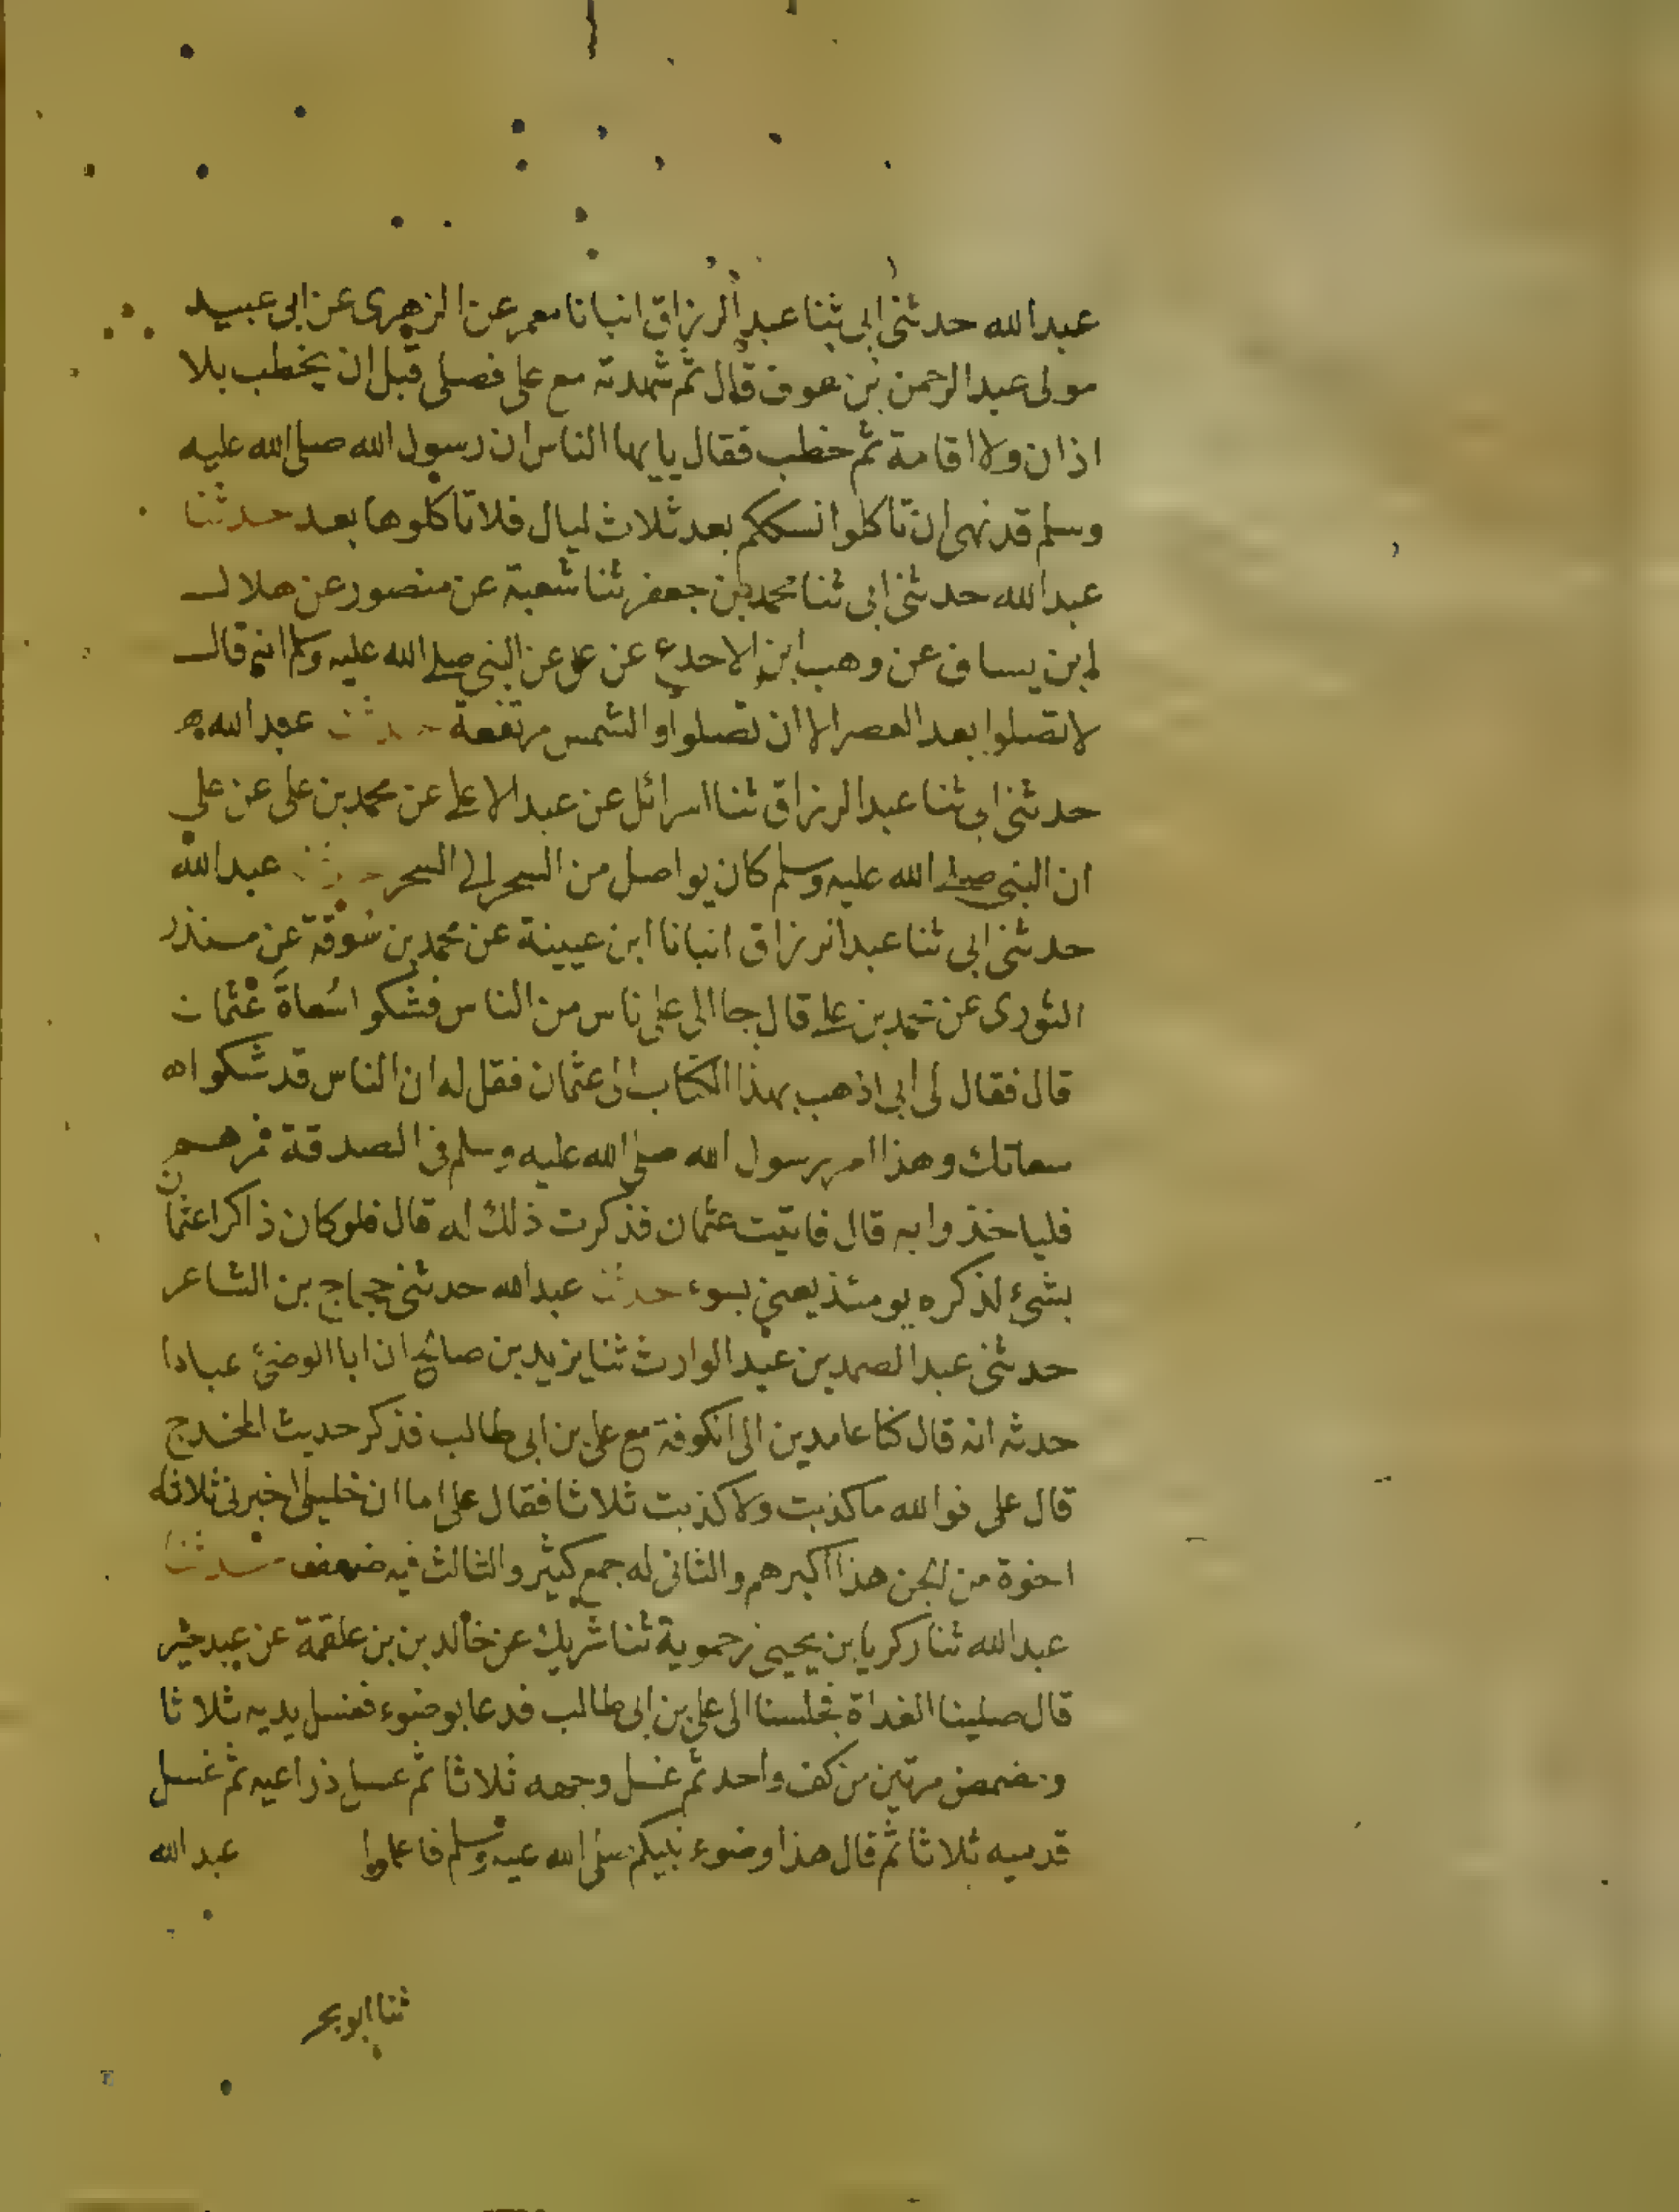 عبدالله حدثنى ابى ثنا عبد الرزاق انبانا معمر عن الزهرى عن ابى عبيد
مولى عبدالرحمن بن عوف قال ثم شهدته مع على فصلى قبل ان يخطب بلا
اذان ولا اقامة ثم خطب فقال يايها الناس ان رسول الله صلى الله عليه
وسلم قد نهى ان تاكلوا نسككم بعد ثلاث ليال فلا تاكلوها بعد حدثنا
عبدالله حدثنى ابى ثنا محمد بن جعفر ثنا شعبة عن منصور عن هلال
ابن يساف عن وهب ابن الاجدع عن على عن النبى صلى الله عليه وسلم انه قال
لا تصلوا بعد العصر الا ان تصلوا والشمس مرتفعة حدثنا عبدالله
حدثنى ابى ثنا عبدالرزاق ثنا اسرائل عن عبد الاعلى عن محمد بن على عن على
ان النبى صلى الله عليه وسلم كان يواصل من السحر الى السحر حدثنا عبدالله
حدثنى ابى ثنا عبدالرزاق انبانا ابن عيينة عن محمد بن سُوقة عن منذر
الثورى عن محمد بن على قال جا الى على ناس من الناس فشكوا سُعاةَ عثمان
قال فقال لى ابى اذهب بهذا الكتاب الى عثمان فقل له ان الناس قد شكوا
سعاتك وهذا امر رسول الله صلى الله عليه وسلم فى الصدقة فمرهم
فلياخذوا به قال فاتيت عثمان فذكرت ذلك له قال فلو كان ذاكرا عثمان
بشىء لذكره يومئذ يعنى بسوء حدثنا عبدالله حدثنى حجاج بن الشاعر
حدثنى عبدالصمد بن عبدالوارث ثنا يزيد بن صالح ان ابا الوضئ عبادا
حدثه انه قال كنا عامدين الى الكوفة مع على بن ابى طالب فذكر حديث المخدج
قال على فوالله ما كذبت ولا كذبت ثلاثا فقال على اما ان خليلى اخبرنى ثلاثة
اخوة من الجن هذا اكبرهم والثانى له جمع كثير والثالث فيه ضعف حدثنا
عبدالله ثنا زكريا بن يحيى زحموية ثنا شريك عن خالد بن بن علقمة عن عبد خير
قال صلينا الغداة فجلسنا الى على بن ابى طالب فدعا بوضوء فغسل يديه ثلاثا
ومضمض مرتين من كف واحد ثم غسل وجهه ثلاثا ثم غسل ذراعيه ثم غسل
قدميه ثلاثا ثم قال هذا وضوء نبيكم صلى الله عليه وسلم فاعلموا عبدالله
ثنا ابو بحر